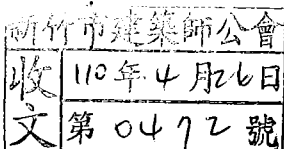 新竹市建築師公會
收文
110年4月26日
第0472號